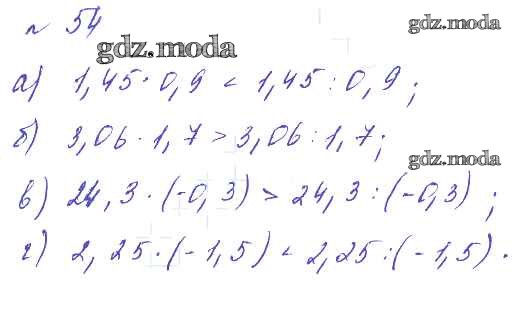 № 54
gdz.moda
gdz.moda
а) 1,45 · 0,9 < 1,45 : 0,9 ;
б) 3,06 · 1,7 > 3,06 : 1,7 ;
gdz.moda
в) 24,3 · (-0,3) > 24,3 : (-0,3) ;
г) 2,25 · (-1,5) < 2,25 : (-1,5) .